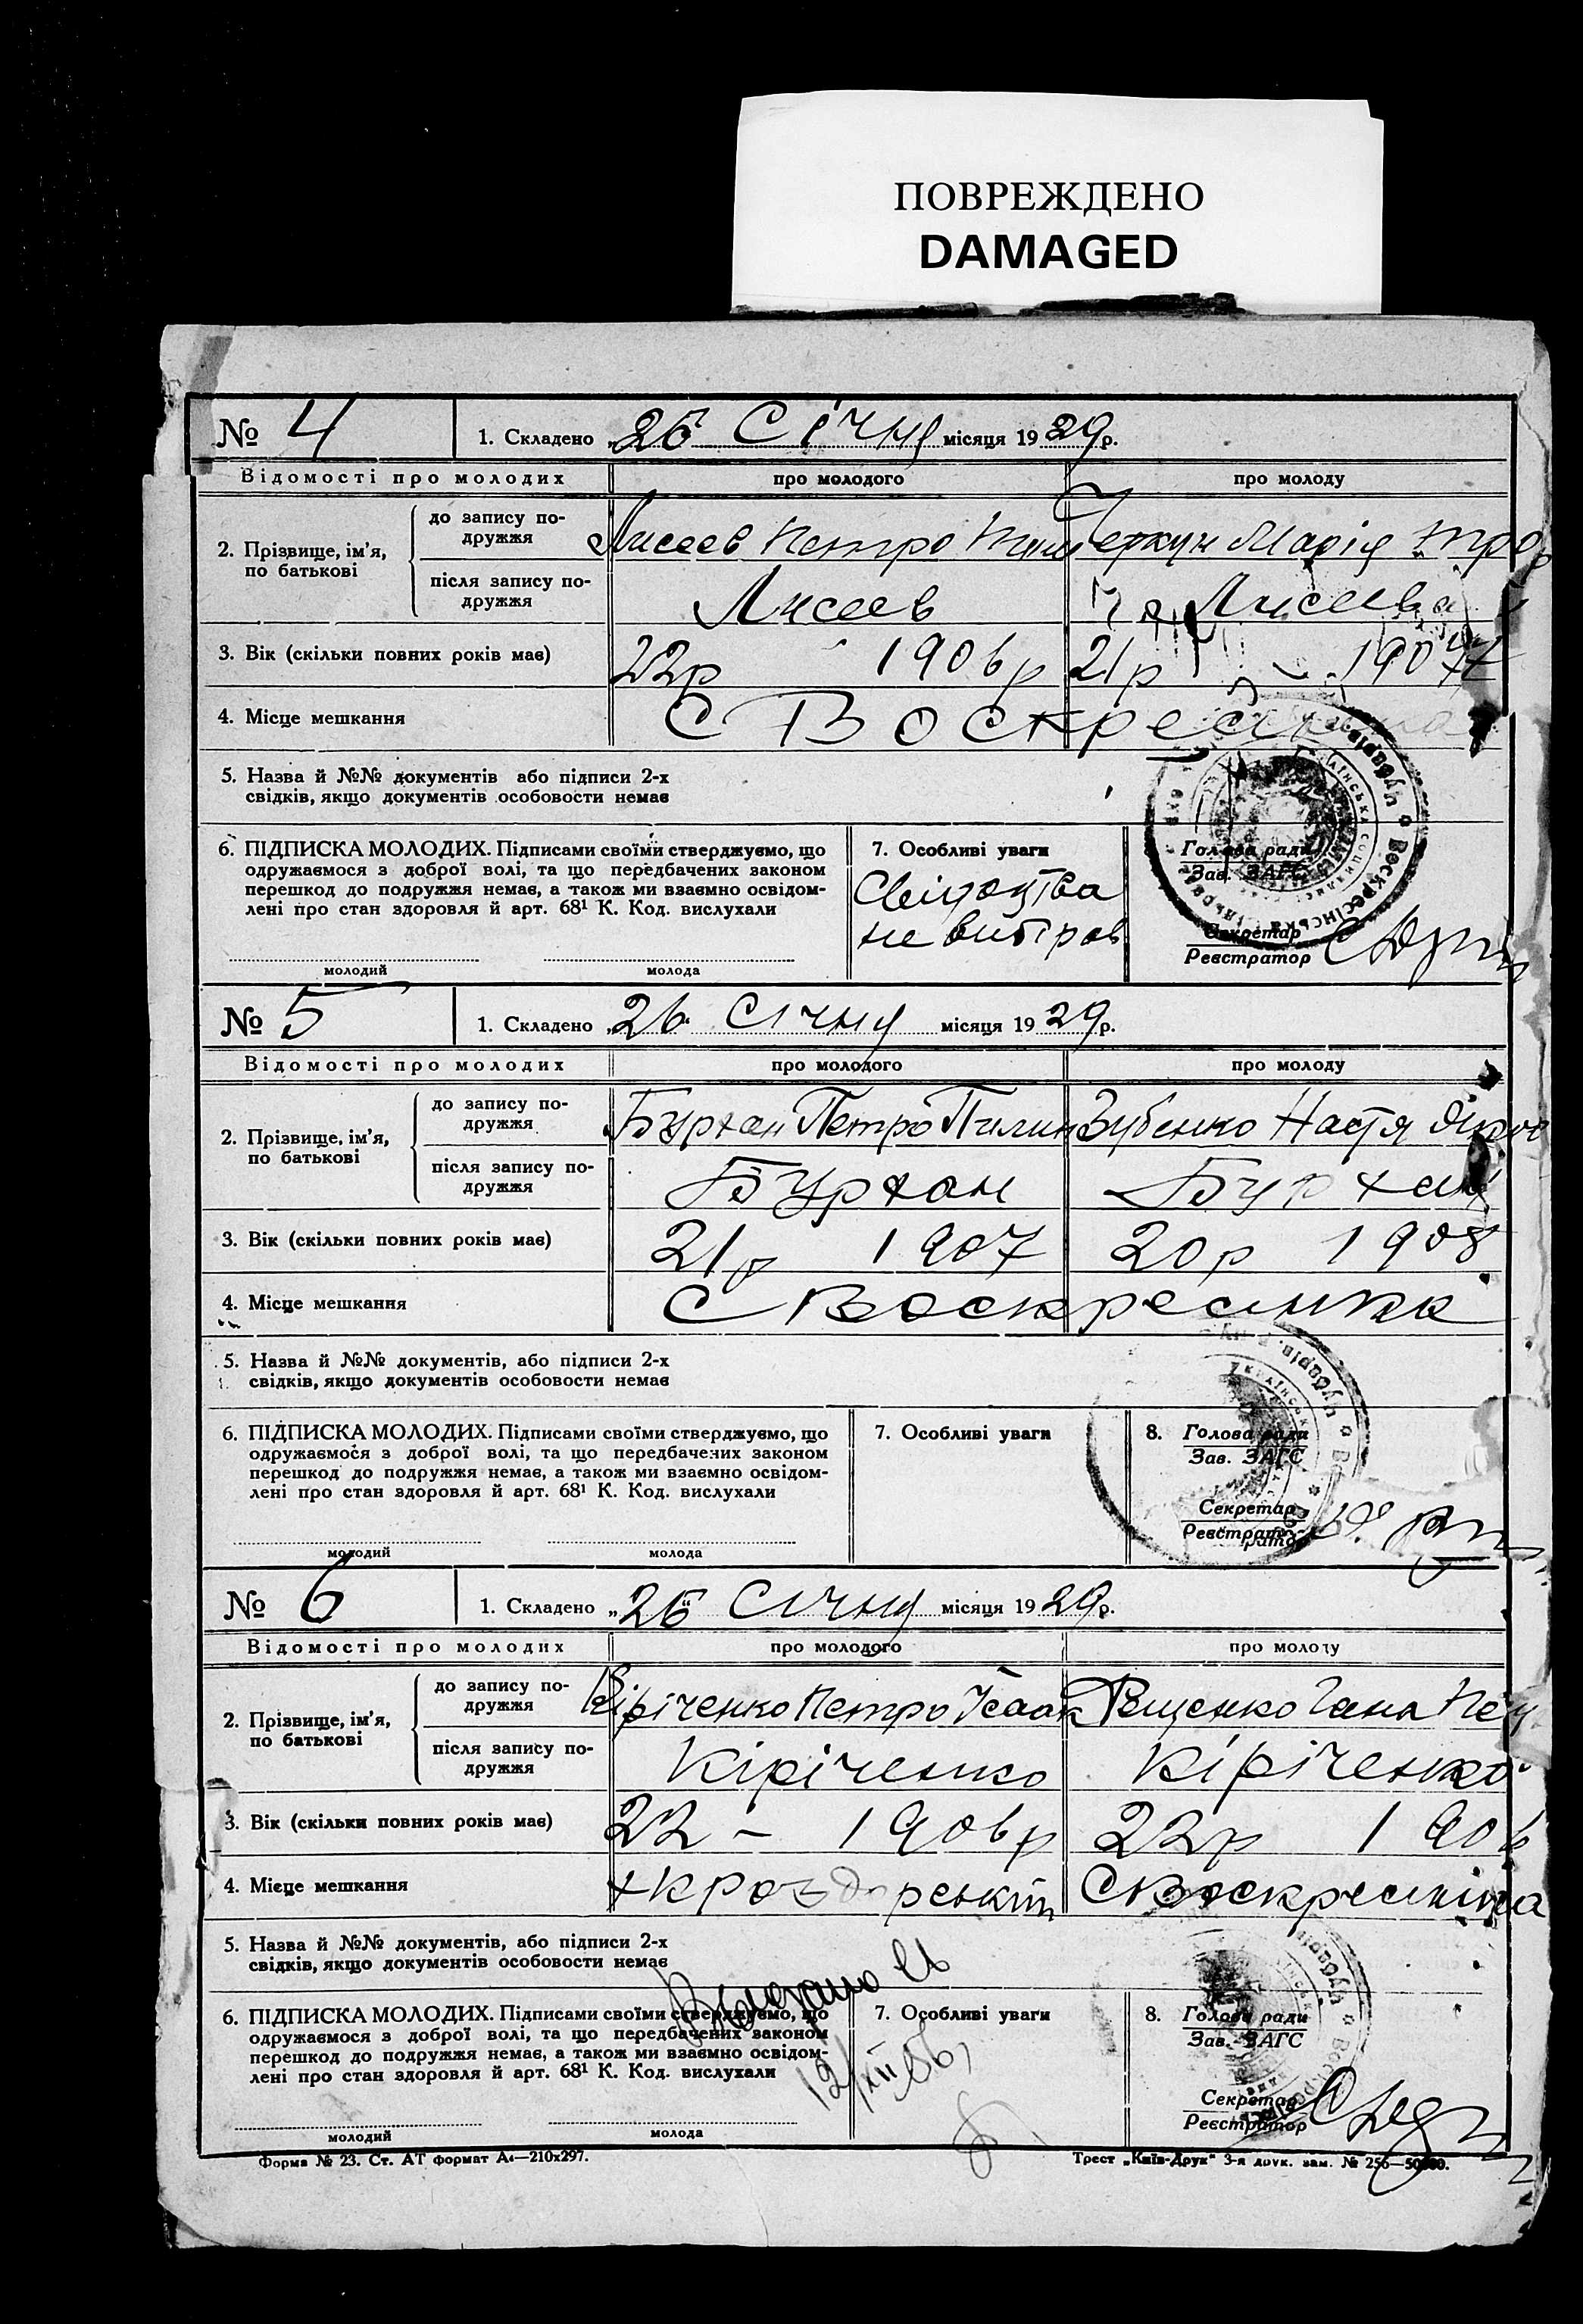 ПОВРЕЖДЕНО
DAMAGED
№ 4 1. Складено „26" Січня місяця 1929 р.
Відомості про молодих про молодого про молоду
2. Прізвище, ім'я, по батькові
до запису подружжя Лисеев Петро Марія
після запису подружжя Лисеев Лисеева
3. Вік (скільки повних років має) 22р 1906р 21р 1907
4. Місце мешкання С Воскресінка
5. Назва й №№ документів або підписи 2-х
свідків, якщо документів особовости немає
6. ПІДПИСКА МОЛОДИХ. Підписами своїми стверджуємо, що
одружаємося з доброї волі, та що передбачених законом
перешкод до подружжя немає, а також ми взаємно освідом-
лені про стан здоровля й арт. 68¹ К. Код. вислухали
молодий молода
7. Особливі уваги
Свідоцтва
не витрав
Голова ради
Зав. ЗАГС
Секретар
Реєстратор
№ 5 1. Складено „26" Січня місяця 1929 р.
Відомості про молодих про молодого про молоду
2. Прізвище, ім'я, по батькові
до запису подружжя Бурхан Петро Пилип Зубенко Настя
після запису подружжя Бурхан Бурхан
3. Вік (скільки повних років має) 21р 1907 20р 1908
4. Місце мешкання С Воскресинка
5. Назва й №№ документів, або підписи 2-х
свідків, якщо документів особовости немає
6. ПІДПИСКА МОЛОДИХ. Підписами своїми стверджуємо, що
одружаємося з доброї волі, та що передбачених законом
перешкод до подружжя немає, а також ми взаємно освідом-
лені про стан здоровля й арт. 68¹ К. Код. вислухали
молодий молода
7. Особливі уваги
8. Голова ради
Зав. ЗАГС
Секретар
Реєстратор
№ 6 1. Складено „26" Січня місяця 1929 р.
Відомості про молодих про молодого про молоду
2. Прізвище, ім'я, по батькові
до запису подружжя Кіріченко Петро Ісаак Гана
після запису подружжя Кіріченко Кіріченко
3. Вік (скільки повних років має) 22 – 1906р 22р 1906
4. Місце мешкання С Воскресінка
5. Назва й №№ документів, або підписи 2-х
свідків, якщо документів особовости немає
6. ПІДПИСКА МОЛОДИХ. Підписами своїми стверджуємо, що
одружаємося з доброї волі, та що передбачених законом
перешкод до подружжя немає, а також ми взаємно освідом-
лені про стан здоровля й арт. 68¹ К. Код. вислухали
молодий молода
7. Особливі уваги
12/XII 56
8. Голова ради
Зав. ЗАГС
Секретар
Реєстратор
Форма № 23. Ст. АТ формат А4—210х297. Трест „Київ-Друк" 3-я друк. зам. № 256—50000.